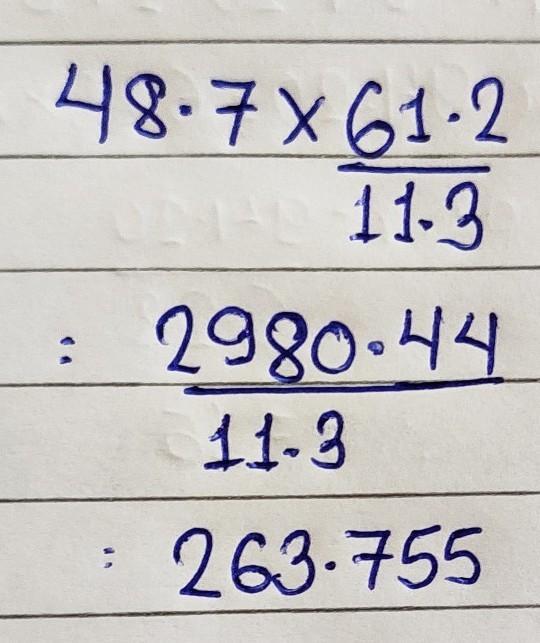 48.7 × 61.2
11.3
: 2980.44
11.3
: 263.755